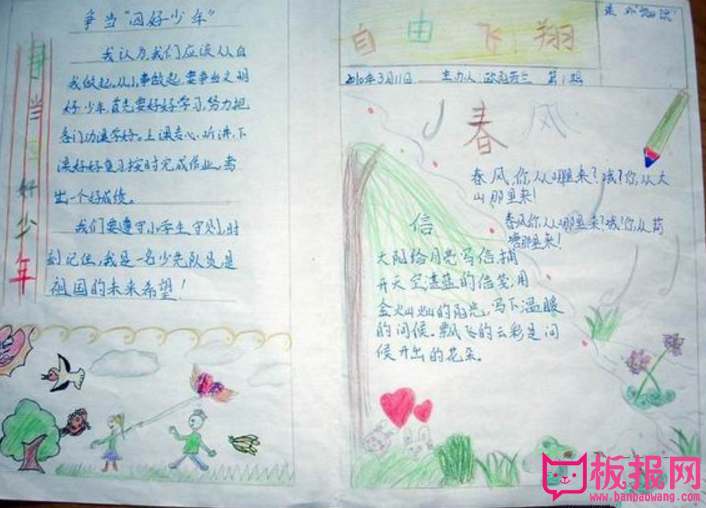 争当“四好少年”
我认为,我们应该从自
我做起。从小事做起,要争当文明
好少年,首先要好好学习,努力把
各门功课学好。上课专心听讲,下
课好好复习,按时完成作业,考
出一个好成绩。
我们要遵守小学生守则,时
刻记住,我是一名少先队员,是
祖国的未来希望!
争当四好少年
自由飞翔
课外知识
2010年3月11日 主办人: 第1期
小春风
春风,你从哪里来?哦!你从大
山那里来!
春风你从哪里来?哦!你从荷
塘那里来!
信
太阳给月亮写信捎
开天空湛蓝的信笺,用
金灿灿的阳光,写下温暖
的问候。飘飞的云彩是问
候开出的花朵。
板报网
www.banbaowang.com